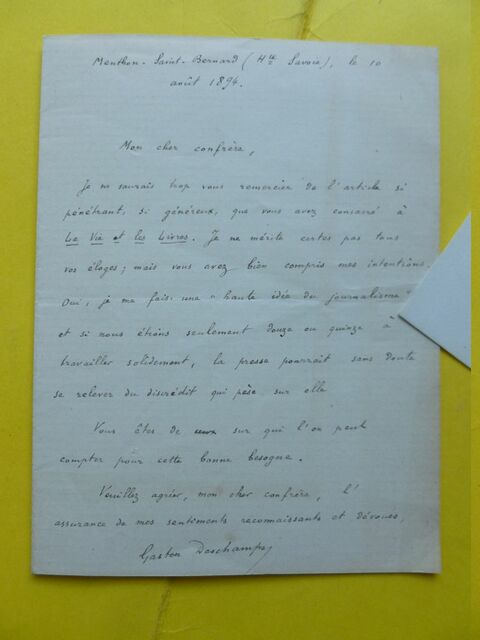 Menthon-Saint-Bernard (Hte Savoie), le 10
août 1894.
Mon cher confrère,
Je ne saurais trop vous remercier de l'article si
pénétrant, si généreux, que vous avez consacré à
La Vie et les Livres. Je ne mérite certes pas tous
vos éloges; mais vous avez bien compris mes intentions.
Oui, je me fais une "haute idée du journalisme"
et si nous étions seulement douze ou quinze à
travailler solidement, la presse pourrait sans doute
se relever du discrédit qui pèse sur elle
Vous êtes de ceux sur qui l'on peut
compter pour cette bonne besogne.
Veuillez agréer, mon cher confrère, l'
assurance de mes sentiments reconnaissants et dévoués,
Gaston Deschamps